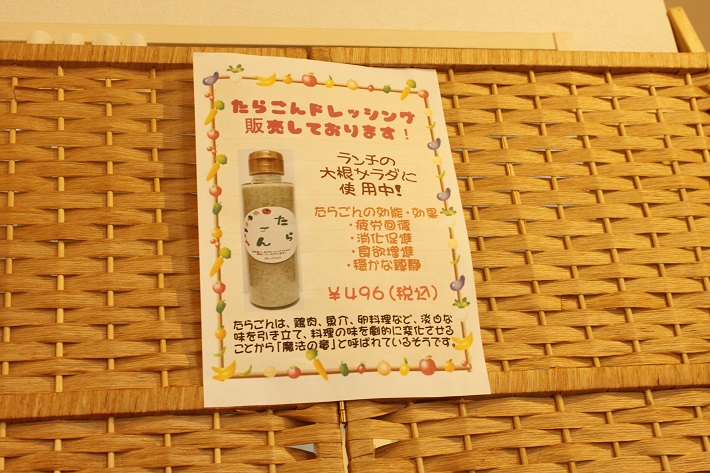 たらごんドレッシング
販売しております!
ランチの
大根サラダに
使用中!
たらごんの効能・効果
・疲労回復
・消化促進
・食欲増進
・穏かな鎮静
¥496(税込)
たらごん
たらごんは、鶏肉、魚介、卵料理など、淡白な
味を引き立て、料理の味を劇的に変化させる
ことから「魔法の竜」と呼ばれているそうです。